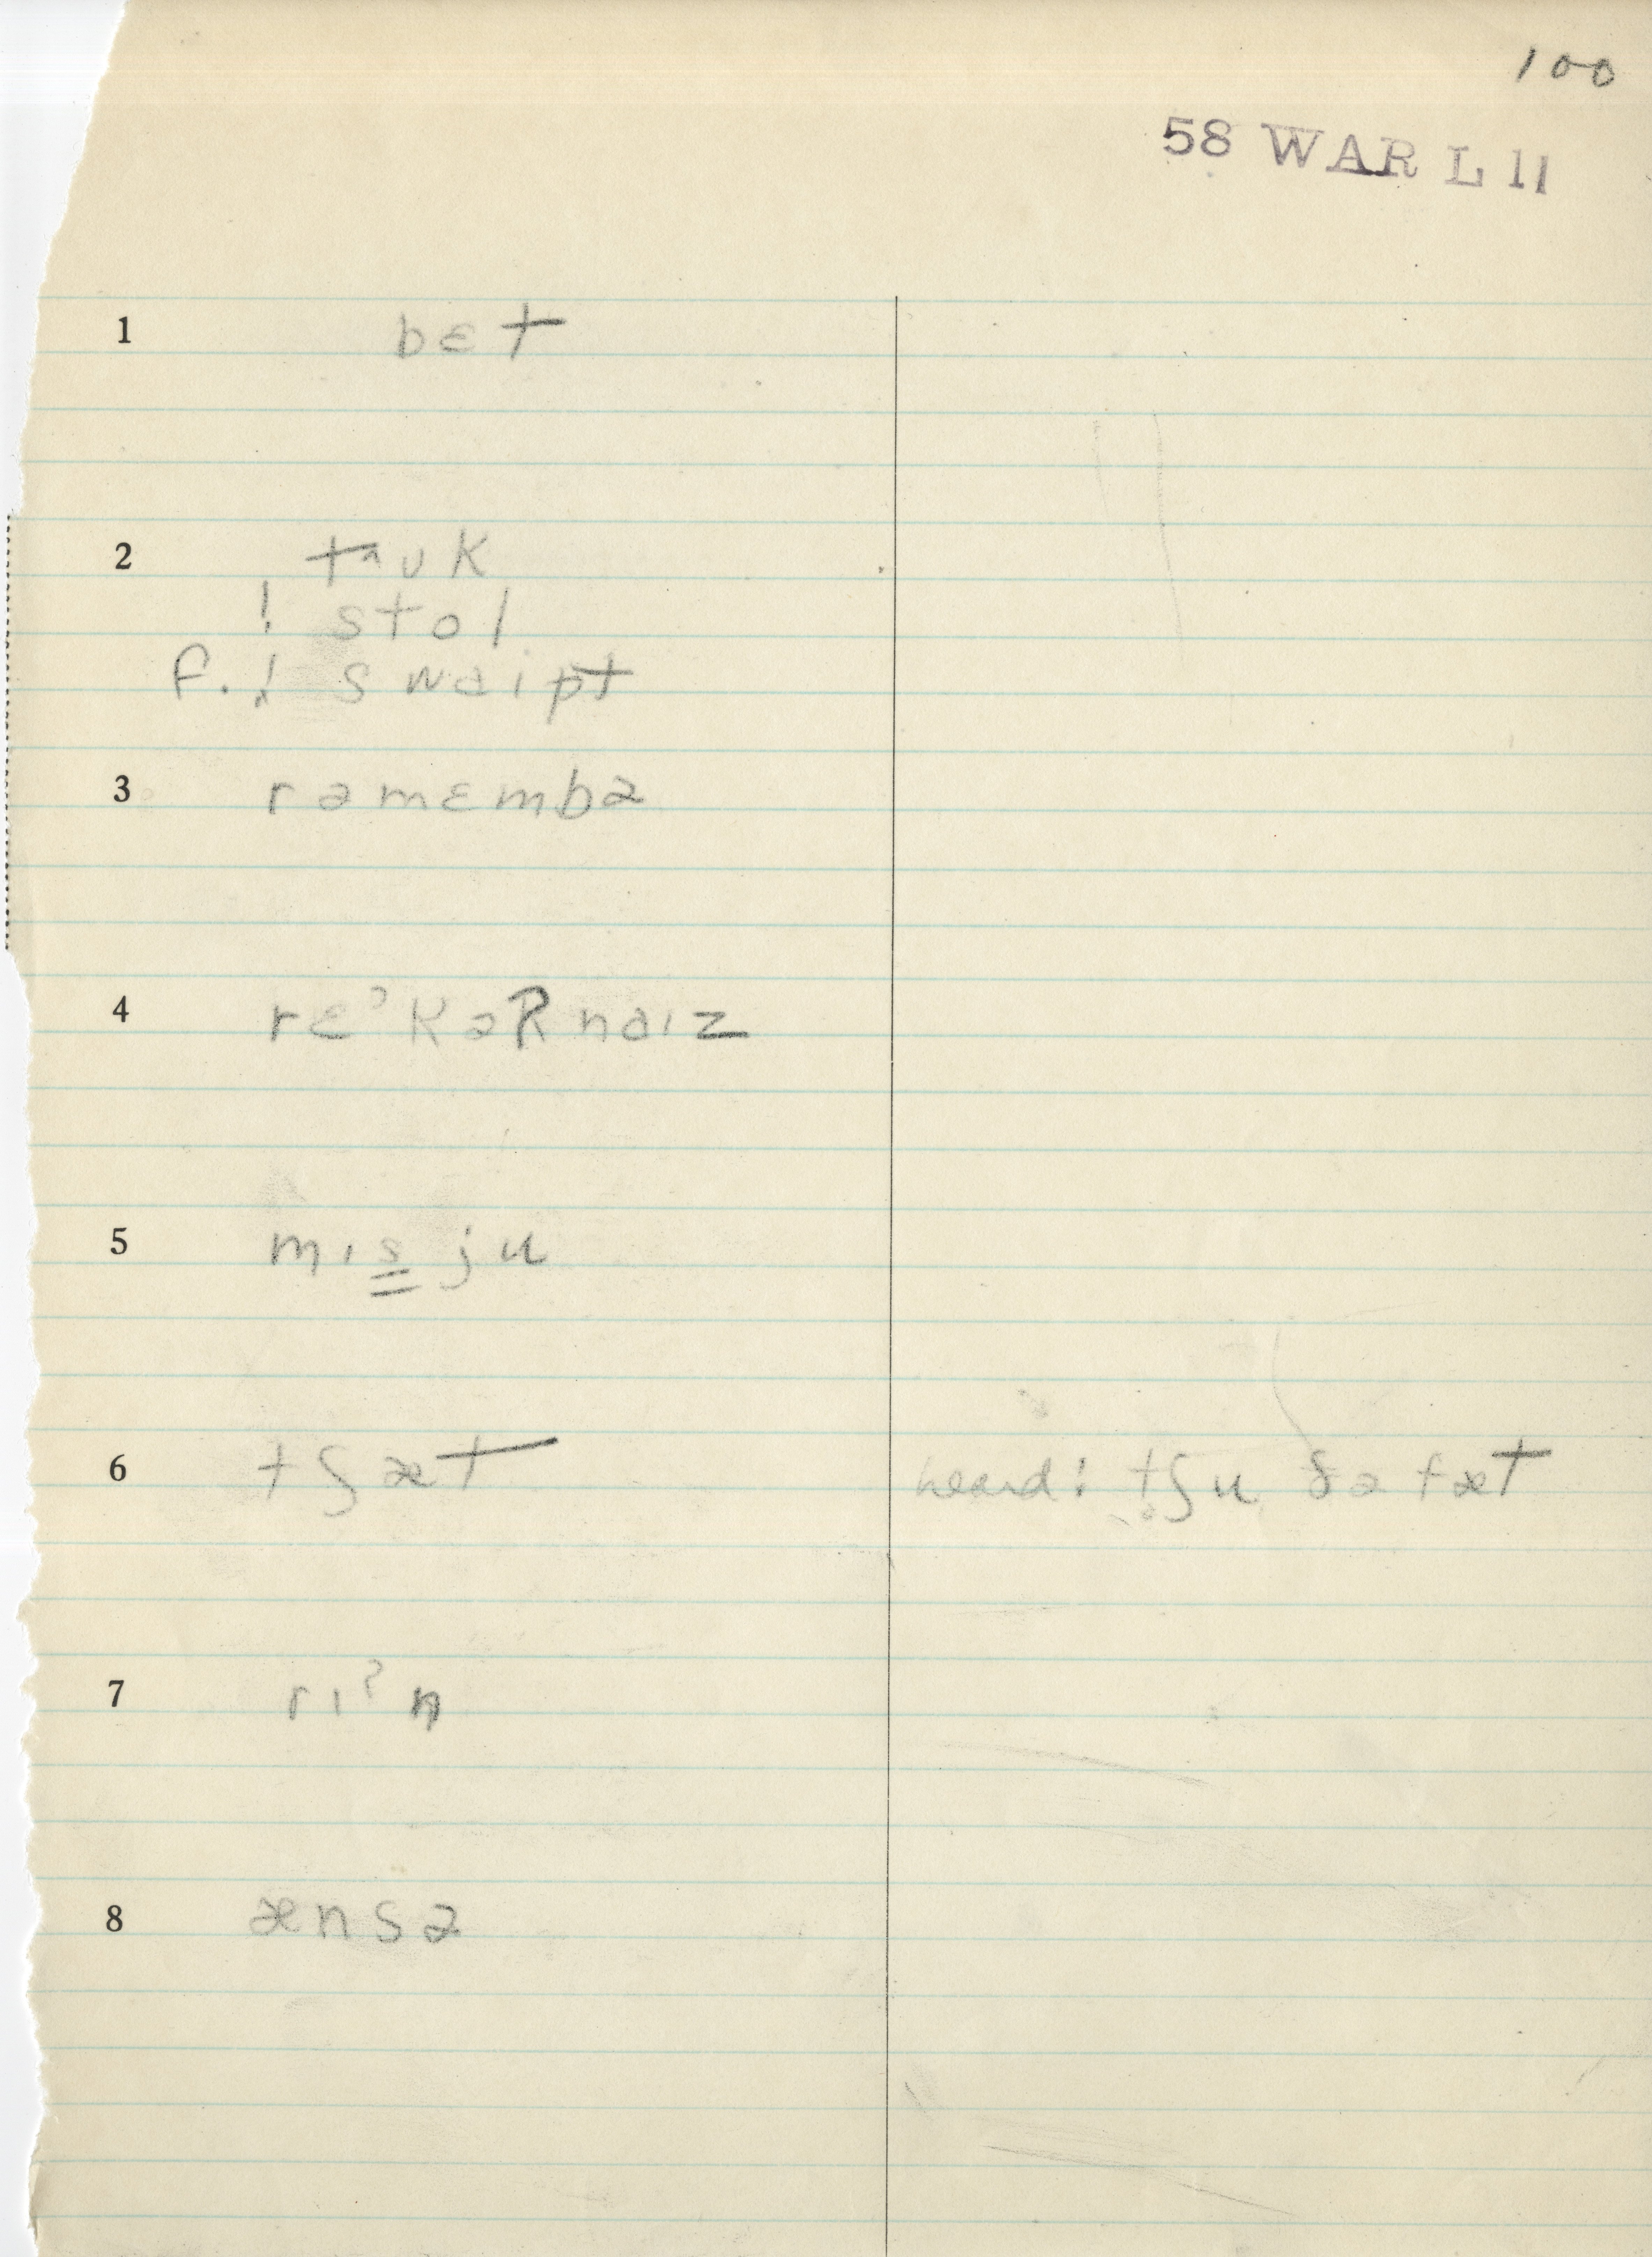 100
58 WAR L 11
1 bɛt
2 tɐʊk
! stol
f. ! swaipt
3 rəmɛmbə
4 rɛˀkəRnaɪz
5 mɪs̳ ju
6 tʃæt heard: tʃu ðə fæt
7 rɪˀn
8 ænsə